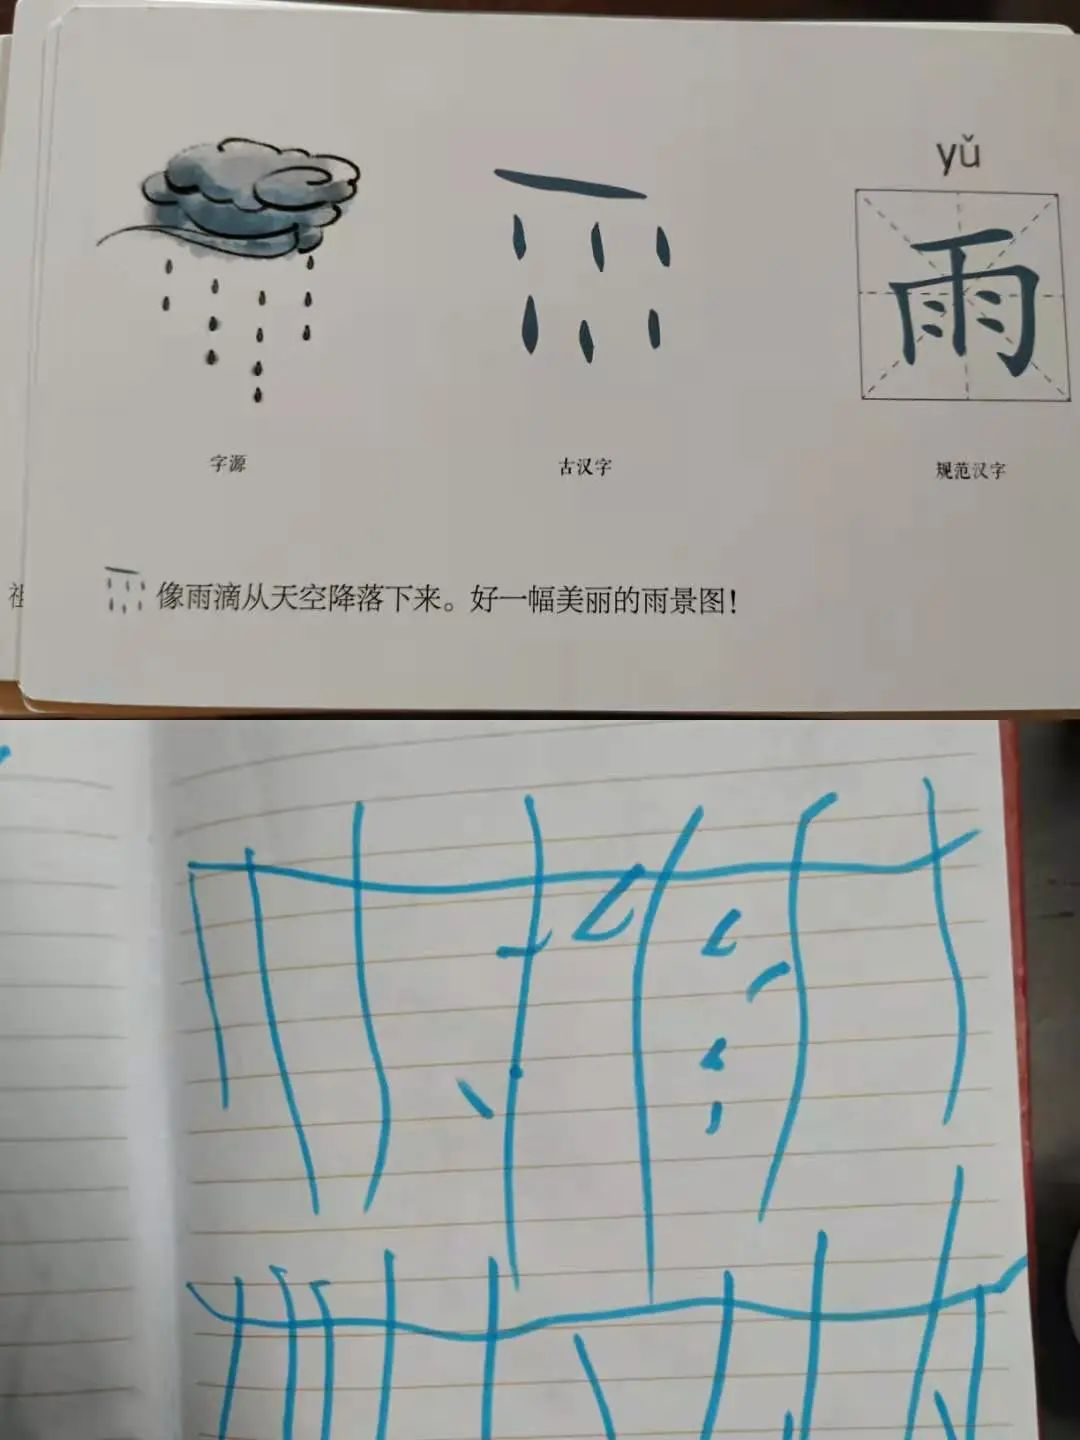 yǔ
雨
字源
古汉字
规范汉字
像雨滴从天空降落下来。好一幅美丽的雨景图！